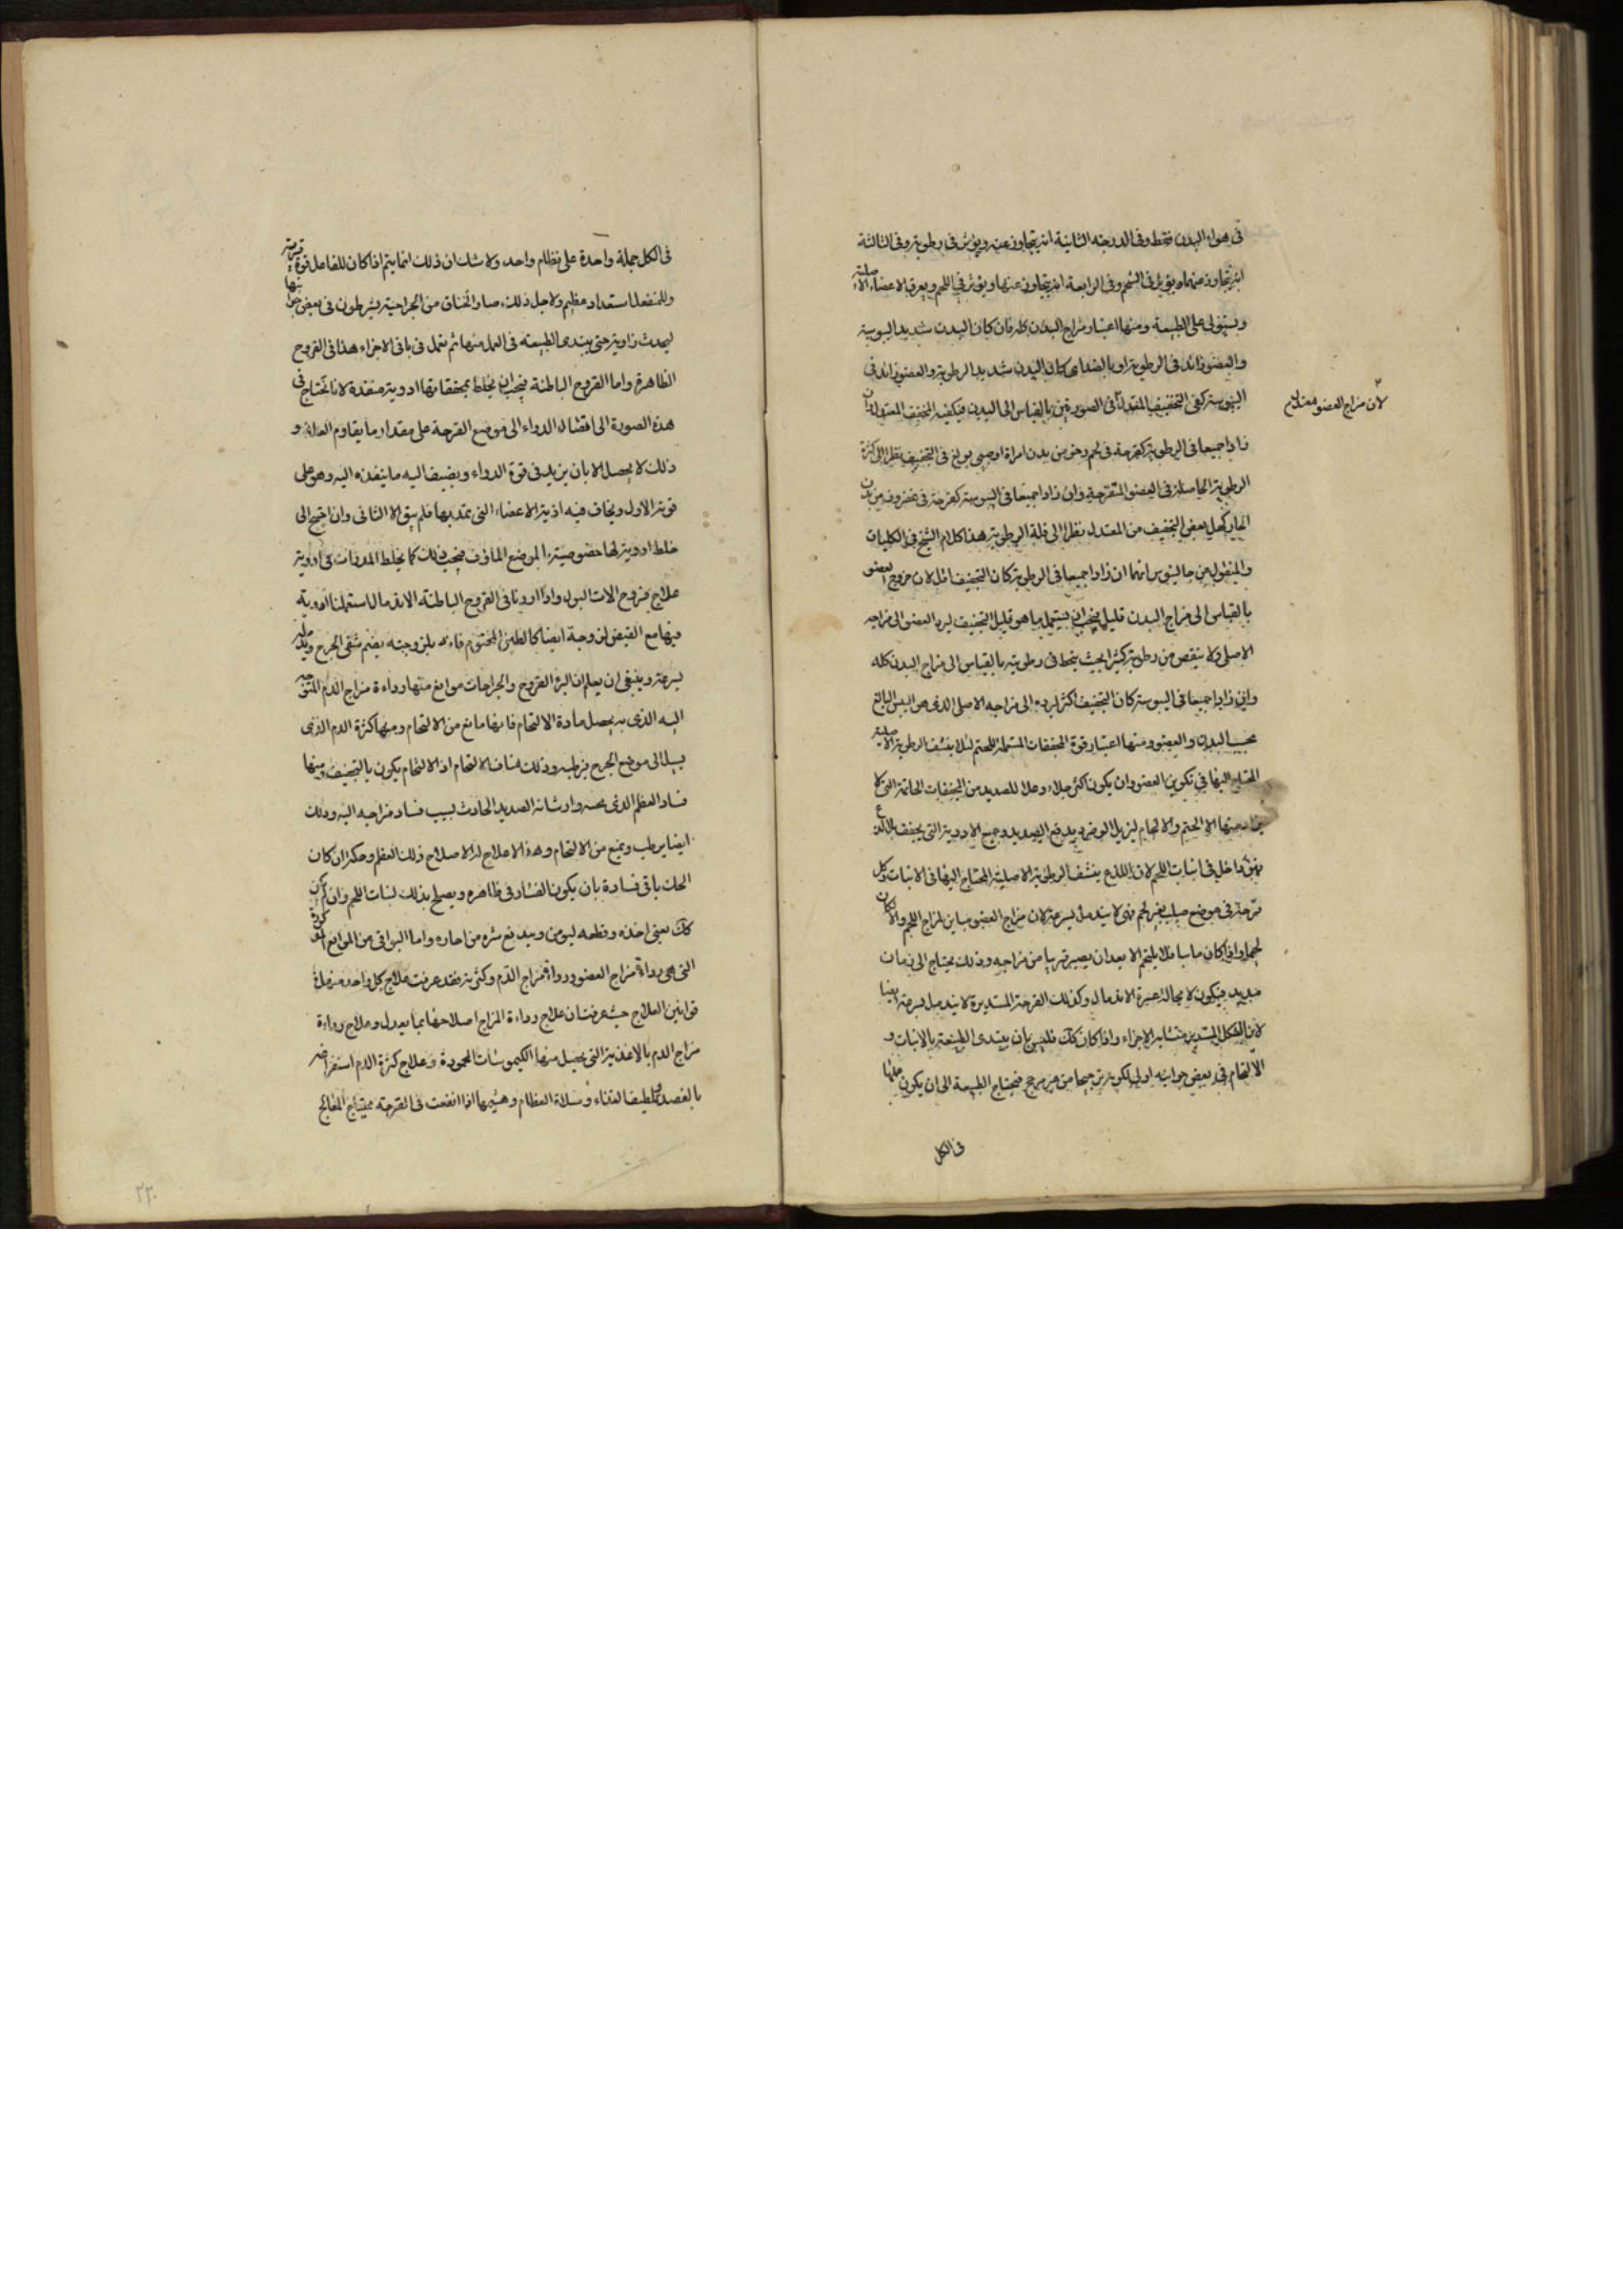 فى هواء البدن فقط وفى الدرجه الثانية انه يتجاوز عنه ويؤثر فى رطوبته وفى الثالثة
انه يتجاوز عنهما ويؤثر فى الشحم وفى الرابعة انه يتجاوز عنها ويؤثر فى اللحم ويعرق الاعضاء الاصلية
ويستولى على الطبيعة ومنها اعتبار مزاج البدن كله فان كان البدن شديد اليبوسة
والعضو زائد فى الرطوبة او بالضد اى كان البدن شديد الرطوبة والعضو زائد فى
اليبوسة كفى التجفيف المعتدل فى الصورتين بالقياس الى البدن فيكفيه المجفف المعتدل وان
لان مزاج العضو معتدل
زادا جميعا فى الرطوبة كقرحة فى لحم رخو من بدن امراة او صبى بولغ فى التجفيف نظرا الى كثرة
الرطوبة الحاصلة فى العضو المتقرحة وان زادا جميعا فى اليبوسة كقرحة فى غضروف من بدن
يعمل بعض التجفيف من المعتدل نظرا الى قلة الرطوبة هذا كلام الشيخ فى الكليات
والمنقول عن جالينوس انهما ان زادا جميعا فى الرطوبة كان التجفيف اقل لان خروج العضو
بالقياس الى مزاج البدن قليل فيجب ان يستعمل ما هو قليل التجفيف ليرد العضو الى مزاجه
الاصلى ولا ينقص من رطوبته كثيرا بحيث ينحط فى رطوبته بالقياس الى مزاج البدن كله
وان زادا جميعا فى اليبوسة كان التجفيف اكثر ليرده الى مزاجه الاصلى الذى هو اليبس البالغ
بحسب البدن والعضو ومنها اعتبار قوة المجففات المستعملة للختم لئلا ينشف الرطوبة الاصلية
المحتاج اليها فى تكوين العضو وان يكون اكثر جلاء وغسلا للصديد من المجففات الخاتمة التى لا
يراد منها الا الختم والالحام ليزيل الوضر ويدفع الصديد وجميع الادوية التى يجفف بلا لذع
فهو داخل فى انبات اللحم لان اللذع ينشف الرطوبة الاصلية المحتاج اليها فى الانبات وكل
قرحة فى موضع صلب غير لحم فهى لا يندمل بسرعة لان مزاج العضو مباين لمزاج اللحم والا لكان
لحما واذا كان مباينا فلا يلتحم الا بعد ان يصير قريبا من مزاجه وذلك يحتاج الى زمان
مديد فيكون لا محالة عسرة الاندمال وكذلك القرحة المستديرة لا يندمل بسرعة ايضا
لان الشكل المستدير متشابه الاجزاء واذا كان كك فليس بان يبتدى الطبيعة بالانبات و
الالتحام فى بعض جوانبه اولى لكونه ترجيحا من غير مرجح فيحتاج الطبيعة الى ان يكون عملها
فى الكل
فى الكل جملة واحدة على نظام واحد ولا شك ان ذلك انما يتم اذا كان للفاعل قوة قوية
وللمنفعل استعداد عظيم ولاجل ذلك صار الحذاق من الجراحية يشرطون فى بعض جوانبها
ليحدث زاوية حتى يبتدى الطبيعة فى العمل منها ثم تعمل فى باقى الاجزاء هذا فى القروح
الظاهرة واما القروح الباطنة فيجب ان يخلط بمجففاتها ادوية منفذة لانا نحتاج فى
هذه الصورة الى ايصال الدواء الى موضع القرحة على مقدار ما يقاوم العلة و
ذلك لا يحصل الا بان يزيد فى قوة الدواء ويضيف اليه ما ينفذه اليه وهو على
قوته الاول ويخاف فيه اذية الاعضاء التى يمر بها فلم يبق الا الثانى وان احتيج الى
خلط ادوية لها خصوصية بالموضع الماؤف فيجب ذلك كما يخلط المدرات فى ادوية
علاج قروح الات البول واذا اردنا فى القروح الباطنة الاندمال استعملنا ادوية
فيها مع القبض لزوجة ايضا كالطين المختوم فانه بلزوجته يضم شقى الجرح ويدمله
بسرعة وينبغى ان يعلم ان لبرء القروح والجراحات موانع منها رداءة مزاج الدم المتوجه
اليه الذى به يحصل مادة الالتحام فانها مانع من الالتحام ومنها كثرة الدم الذى
يسيل الى موضع الجرح فيرطبه وذلك مناف للالتحام اذ الالتحام يكون بالتجفيف ومنها
فساد العظم الذى تحته وارسانه الصديد الحادث بسبب فساد مزاجه اليه وذلك
ايضا يرطب ويمنع من الالتحام وهذا لا علاج له الا اصلاح ذلك العظم وحكه ان كان
الحك ياتى فساده بان يكون الفساد فى ظاهره ويصلح بذلك لنبات اللحم وان لم يكن
كك يعنى اخذه وقطعه ليومن ويندفع شره من جاره واما البواقى من الموانع المذكورة
التى هى رداءة مزاج العضو ورداءة مزاج الدم وكثرته فقد عرفت علاج كل واحد منها فى
قوانين العلاج حيث عرفت ان علاج رداءة المزاج اصلاحها بما يعدل وعلاج رداءة
مزاج الدم بالاغذية التى يحصل منها الكيموسات المحمودة وعلاج كثرة الدم استفراغه
بالفصد وتلطيف الغذاء وسلاة العظام وهشيمها اذا انقعت فى القرحة يحتاج المعالج
٢٢٠